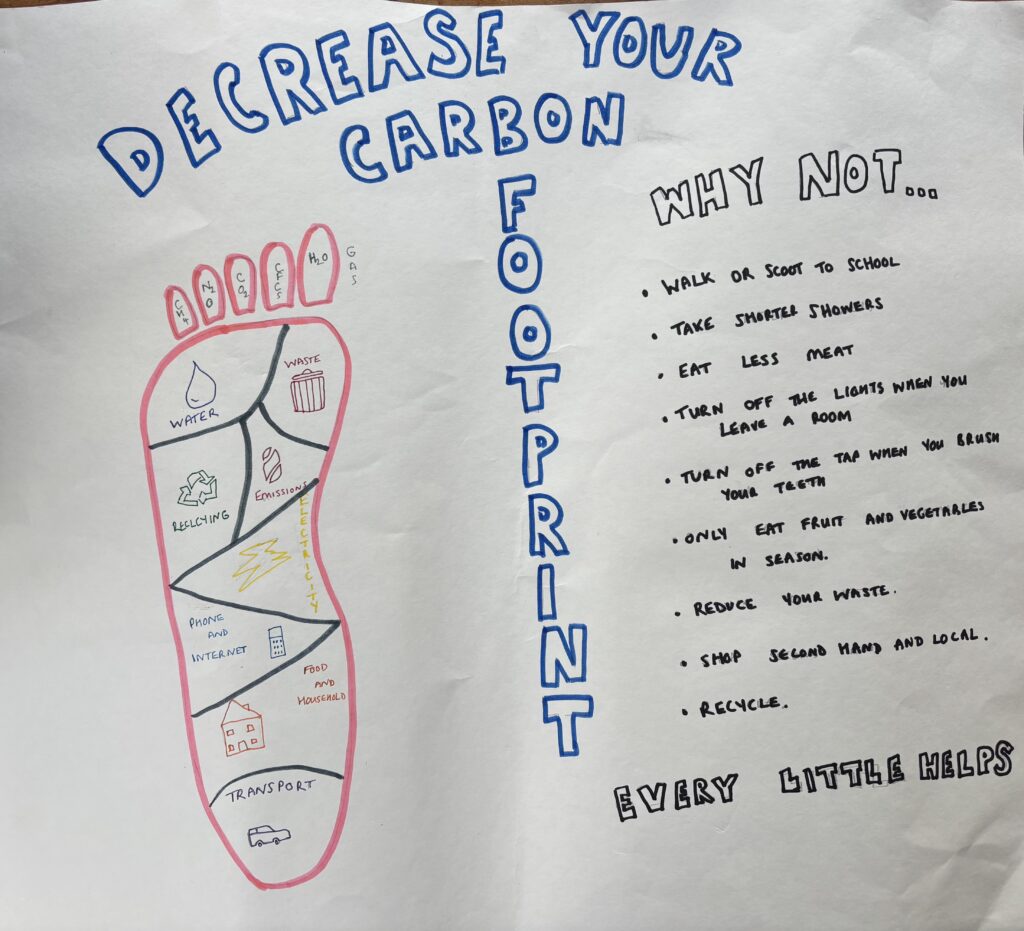 DECREASE YOUR
CARBON
FOOTPRINT
CH4
N2O
CO2
CFCS
H2O
GAS
WATER
WASTE
RECLCYING
EMISSIONS
ELECTRICITY
PHONE
AND
INTERNET
FOOD
AND
HOUSEHOLD
TRANSPORT
WHY NOT...
• WALK OR SCOOT TO SCHOOL
• TAKE SHORTER SHOWERS
• EAT LESS MEAT
• TURN OFF THE LIGHTS WHEN YOU
LEAVE A ROOM
• TURN OFF THE TAP WHEN YOU BRUSH
YOUR TEETH
• ONLY EAT FRUIT AND VEGETABLES
IN SEASON.
• REDUCE YOUR WASTE.
• SHOP SECOND HAND AND LOCAL.
• RECYCLE.
EVERY LITTLE HELPS